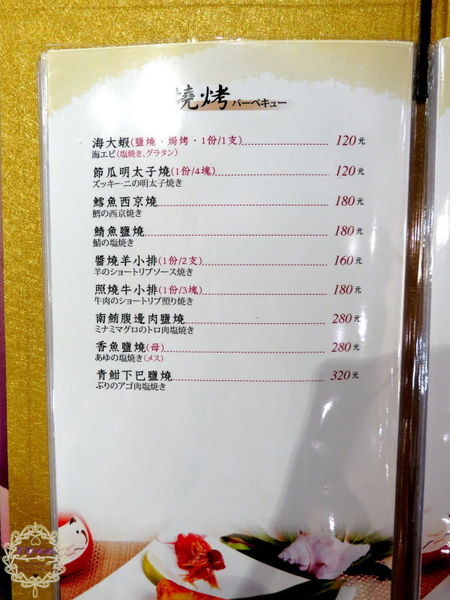 燒烤 バーベキュー
海大蝦(鹽燒・焗烤・1份/1支) 120元
海エビ(塩焼き、グラタン)
節瓜明太子燒(1份/4塊) 120元
ズッキーニの明太子焼き
鱈魚西京燒 180元
鱈の西京焼き
鯖魚鹽燒 180元
鯖の塩焼き
醬燒羊小排(1份/2支) 160元
羊のショートリブソース焼き
照燒牛小排(1份/3塊) 180元
牛肉のショートリブ照り焼き
南鮪腹邊肉鹽燒 280元
ミナミマグロのトロ肉塩焼き
香魚鹽燒(母) 280元
あゆの塩焼き(メス)
青魽下巴鹽燒 320元
ぶりのアゴ肉塩焼き